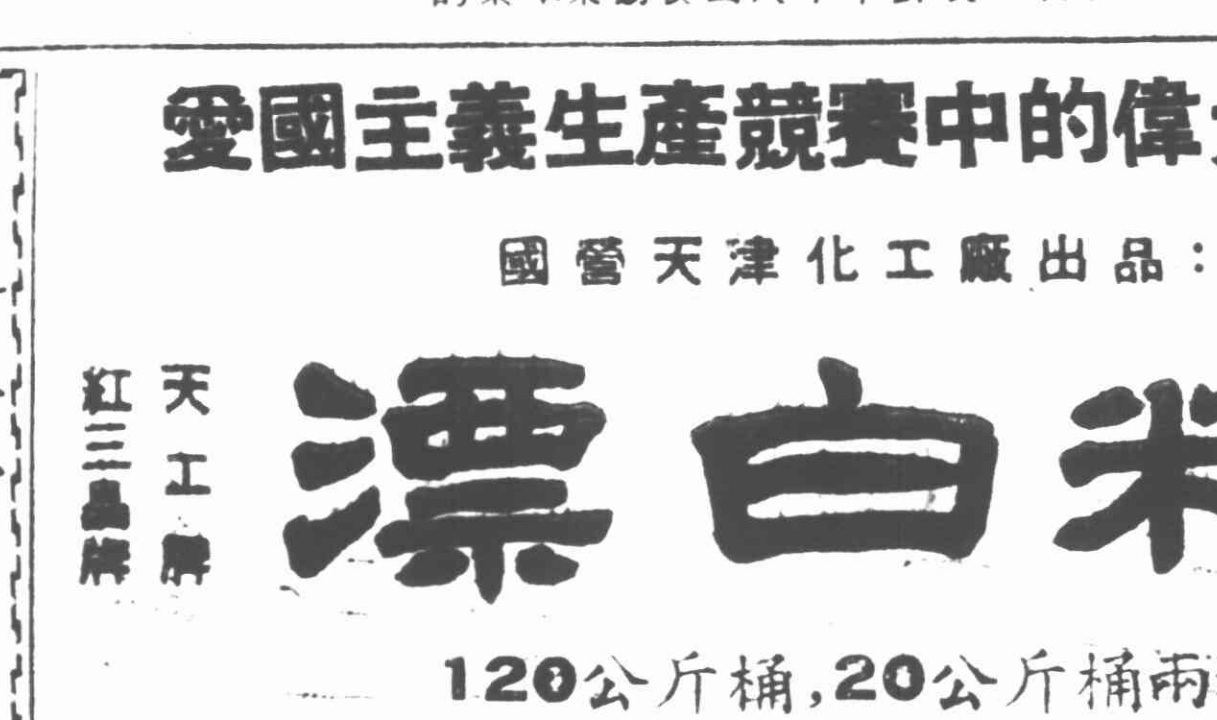 愛國主義生產競賽中的偉
國營天津化工廠出品：
天工牌
紅三品牌
漂白
120公斤桶,20公斤桶兩